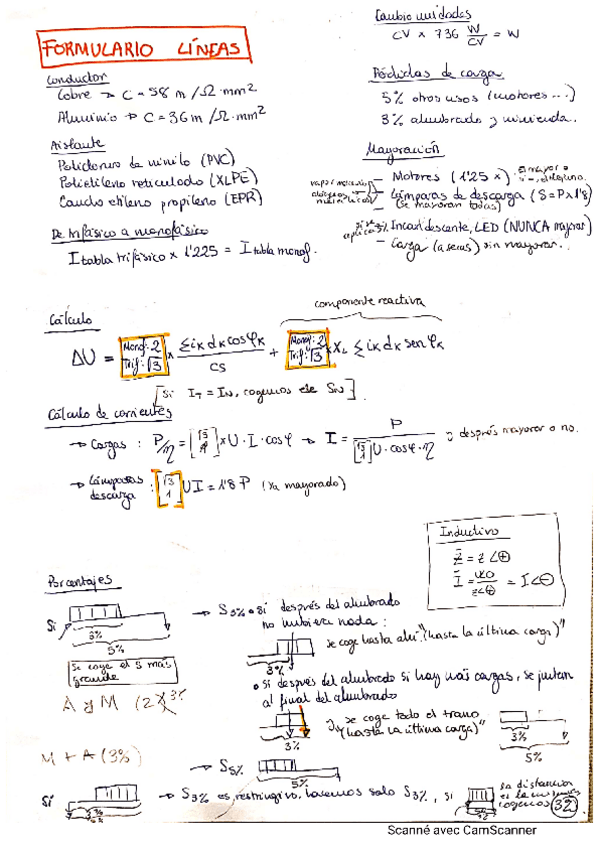 FORMULARIO LÍNEAS
Cambio unidades
CV x 736 W/CV = W
Conductor
Cobre → C = 58 m/Ω·mm²
Aluminio → C = 36 m/Ω·mm²
Pérdidas de carga
5% otros usos (motores...)
3% alumbrado y vivienda.
Aislante
Policloruro de vinilo (PVC)
Polietileno reticulado (XLPE)
Caucho etileno propileno (EPR)
Mayoración
Motores (1'25 x)
Lámparas de descarga (S = P x 1'8)
(se mayoran todas)
Incandescente, LED (NUNCA mayorar)
Carga (a secas) sin mayorar.
De trifásico a monofásico
I tabla trifásico x 1'225 = I tabla monof.
componente reactiva
Cálculo
ΔU = Monof: 2 Trif: √3 x Σ iK dK cos φK / CS + Monof: 2 Trif: √3 x XL Σ iK dK sen φK
[Si IT = IN, cogemos ese SN]
Cálculo de corrientes
→ Cargas : P/η = [√3 1] x U · I · cos φ → I = P / [√3 1] U · cos φ · η y después mayorar o no.
→ Lámparas descarga : [√3 1] U I = 1'8 P (ya mayorado)
Inductivo
Z̄ = Z ∠⊕
Ī = U∠0 / Z∠⊕ = I ∠⊖
Porcentajes
Si
3%
5%
Se coge el S más grande
A y M
→ S3% • Si después del alumbrado no hubiera nada:
3%
se coge hasta ahí "(hasta la última carga)"
• Si después del alumbrado si hay más cargas, se juntan al final del alumbrado
3%
se coge todo el tramo "(hasta la última carga)"
3%
5%
M + A (3%)
→ S5%
5%
Si
→ S3% es restringivo, hacemos solo S3%, si
la distancia es la misma cogemos
32
Scanné avec CamScanner